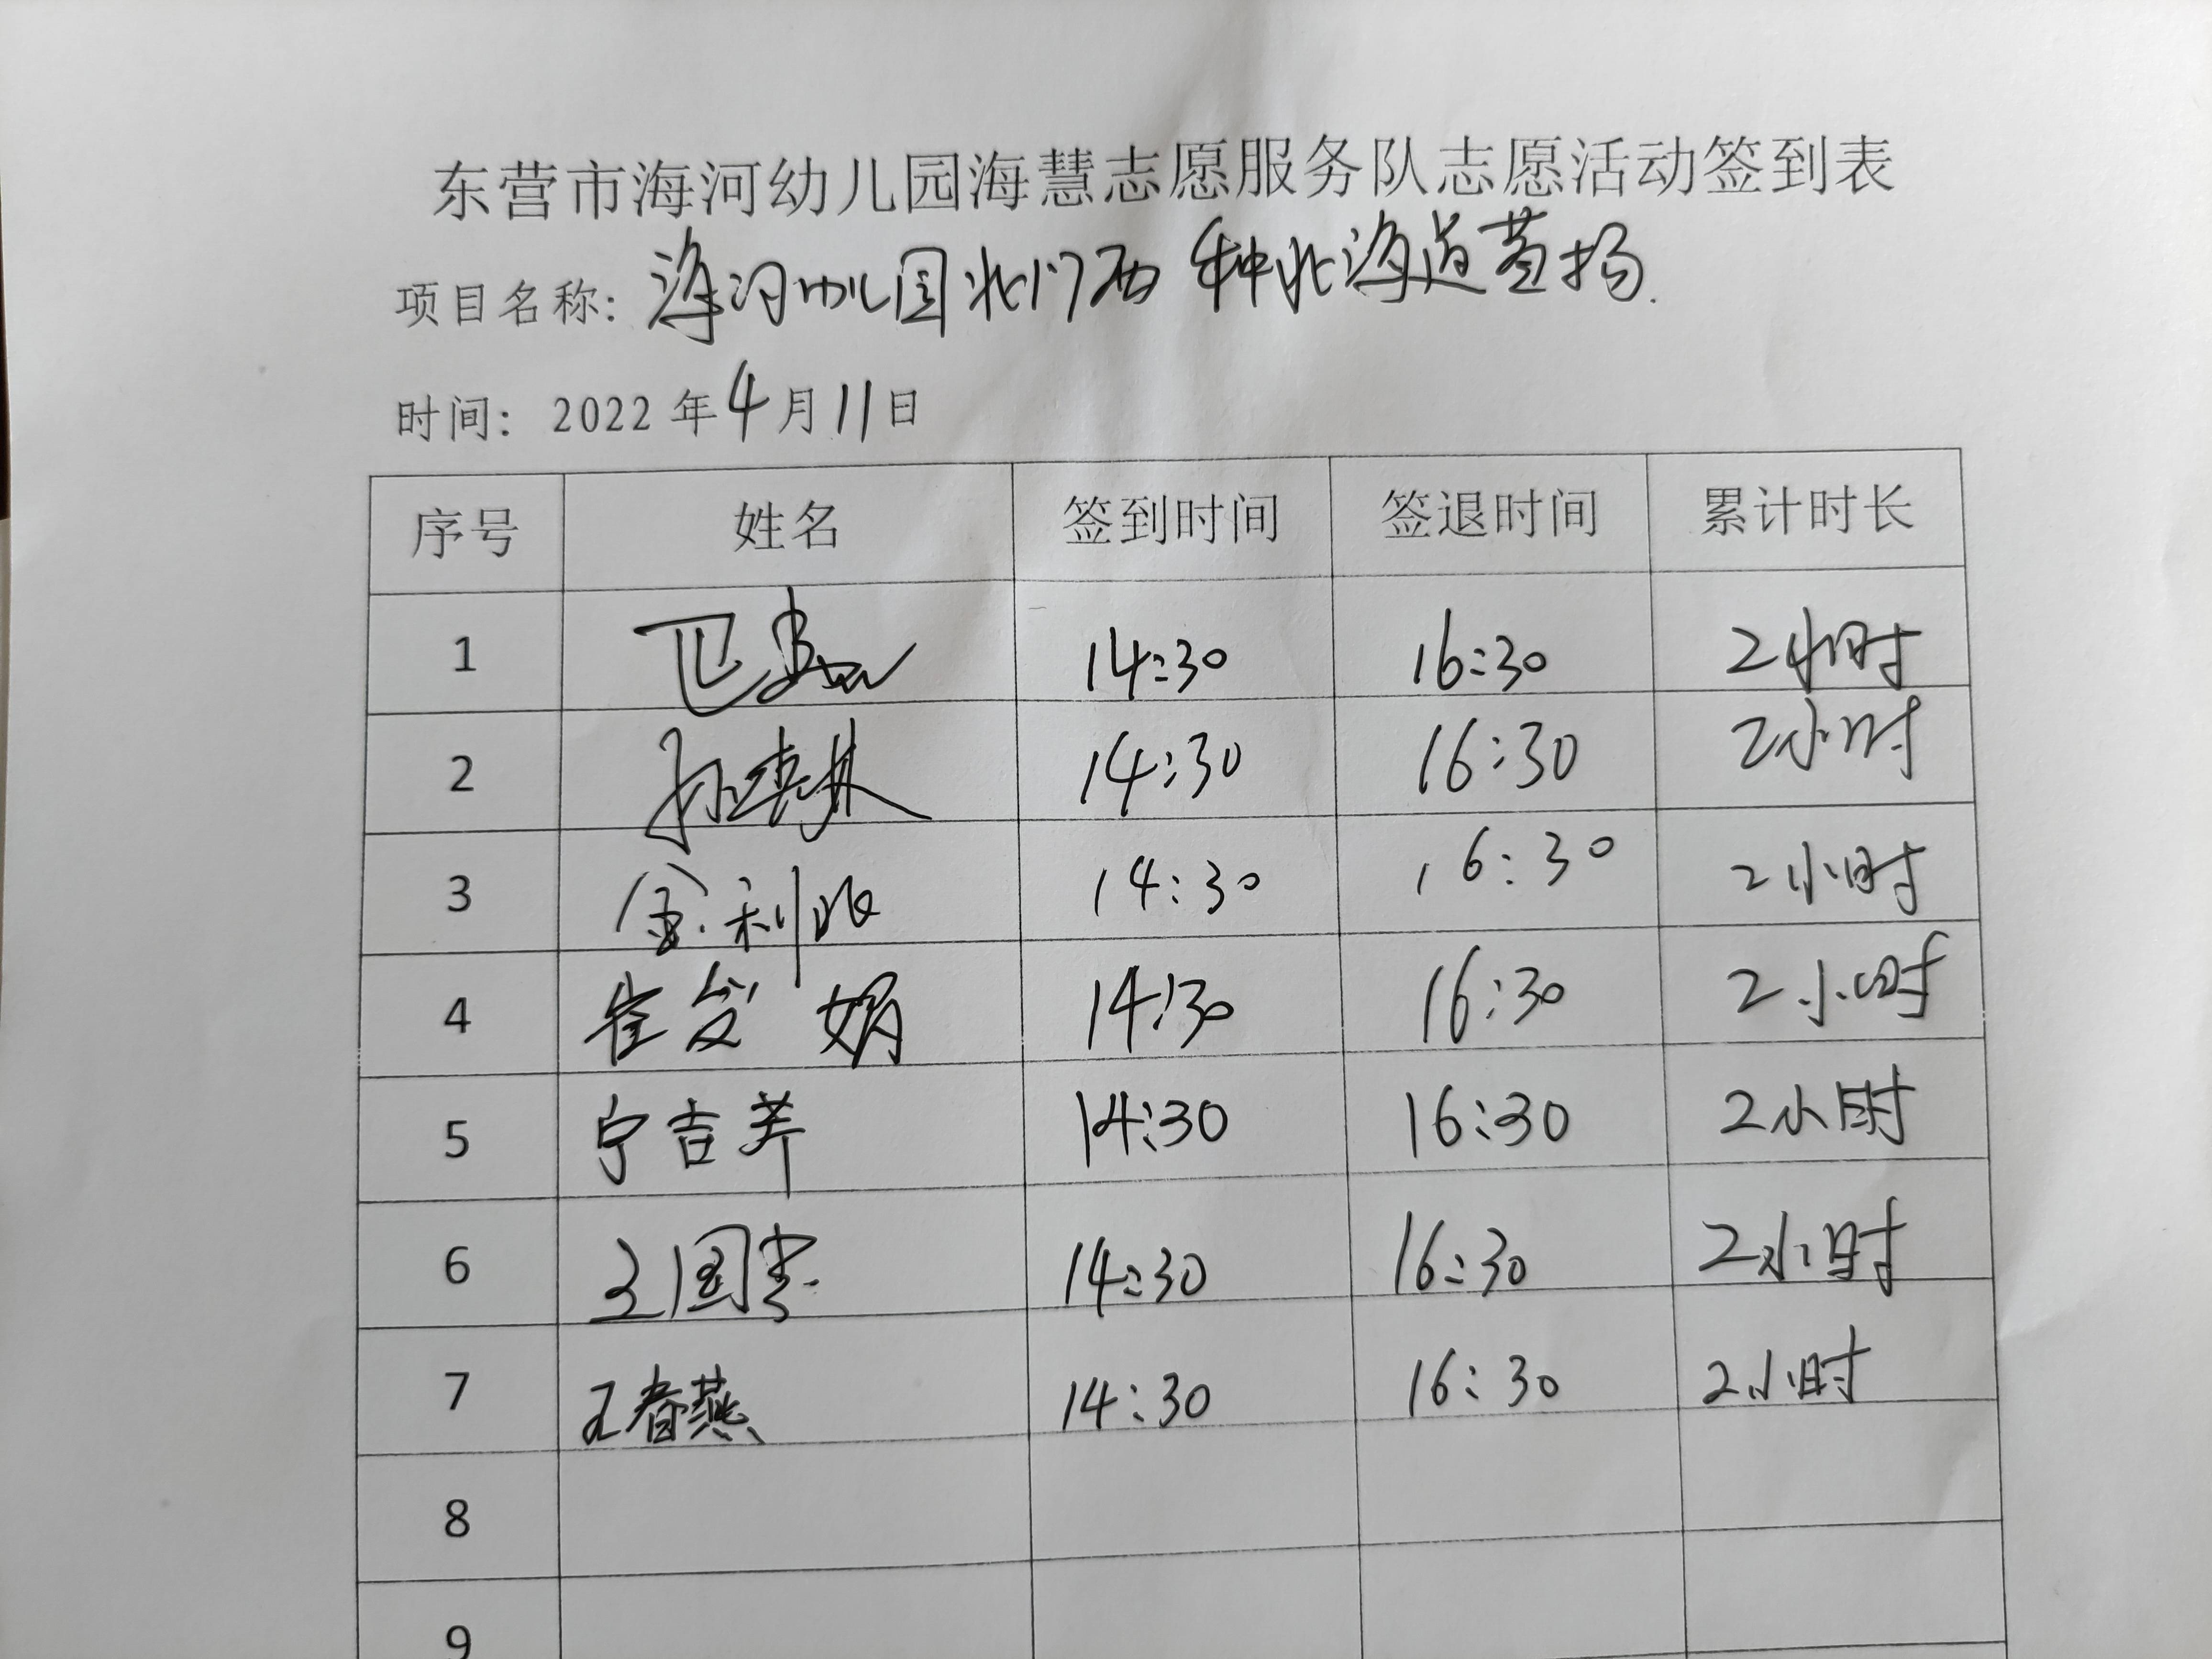 东营市海河幼儿园海慧志愿服务队志愿活动签到表
项目名称：海河幼儿园北门西 种北海道黄杨.
时间： 2022年4月11日
序号 姓名 签到时间 签退时间 累计时长
1 14:30 16:30 2小时
2 14:30 16:30 2小时
3 金利 14:30 16:30 2小时
4 崔 娟 14:30 16:30 2小时
5 宁吉 14:30 16:30 2小时
6 王国 14:30 16:30 2小时
7 王春燕 14:30 16:30 2小时
8
9